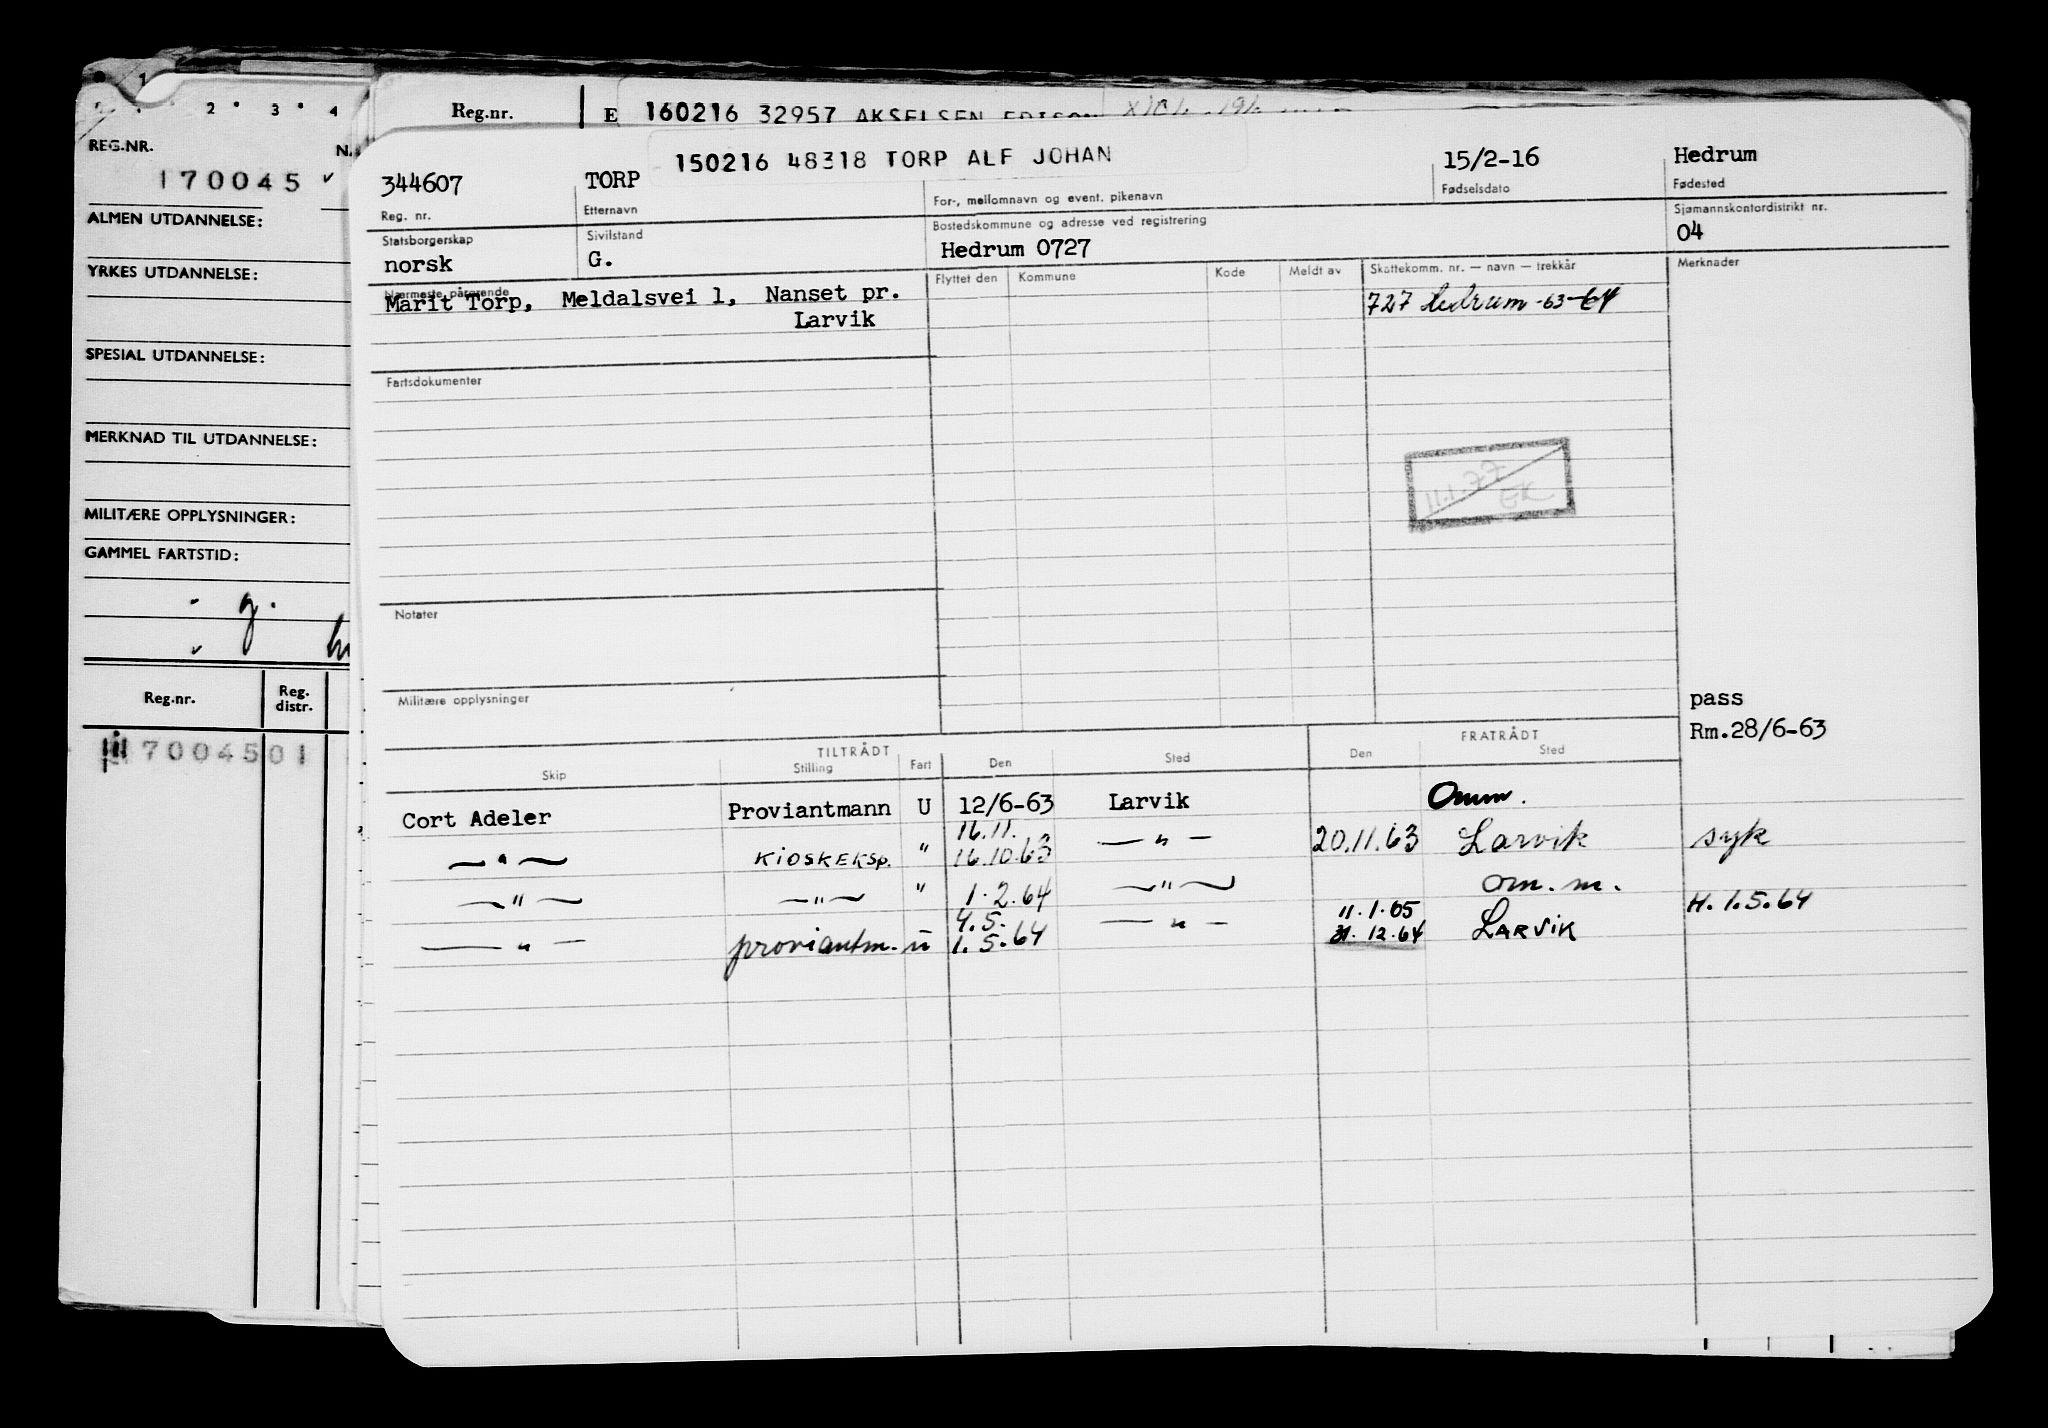 1
2 3 4
REG.NR.
170045 ✓
ALMEN UTDANNELSE:
YRKES UTDANNELSE:
SPESIAL UTDANNELSE:
MERKNAD TIL UTDANNELSE:
MILITÆRE OPPLYSNINGER:
GAMMEL FARTSTID:
g.
Reg.nr. Reg. distr.
7004501
Reg.nr. E 160216 32957 AKSELSEN EDISON
150216 48318 TORP ALF JOHAN
344607 TORP 15/2-16 Hedrum
Reg. nr. Etternavn For-, mellomnavn og event. pikenavn Fødselsdato Fødested
Statsborgerskap Sivilstand Bostedskommune og adresse ved registrering Sjømannskontordistrikt nr.
norsk G. Hedrum 0727 04
Nærmeste pårørende Flyttet den Kommune Kode Meldt av Skattekomm. nr. — navn — trekkår Merknader
Marit Torp, Meldalsvei 1, Nanset pr. 727 Hedrum -63-64
Larvik
Fartsdokumenter
11.1.77
EK
Notater
Militære opplysninger
pass
Rm.28/6-63
TILTRÅDT FRATRÅDT
Skip Stilling Fart Den Sted Den Sted
Cort Adeler Proviantmann U 12/6-63 Larvik Omm.
16.11.
— " — KIOSKEKSP. " 16.10.63 — " — 20.11.63 Larvik syk
— " — — " — " 1.2.64 — " — om.m.
4.5. 11.1.65 H. 1.5.64
— " — proviantm. u 1.5.64 — " — 31.12.64 LARVIK